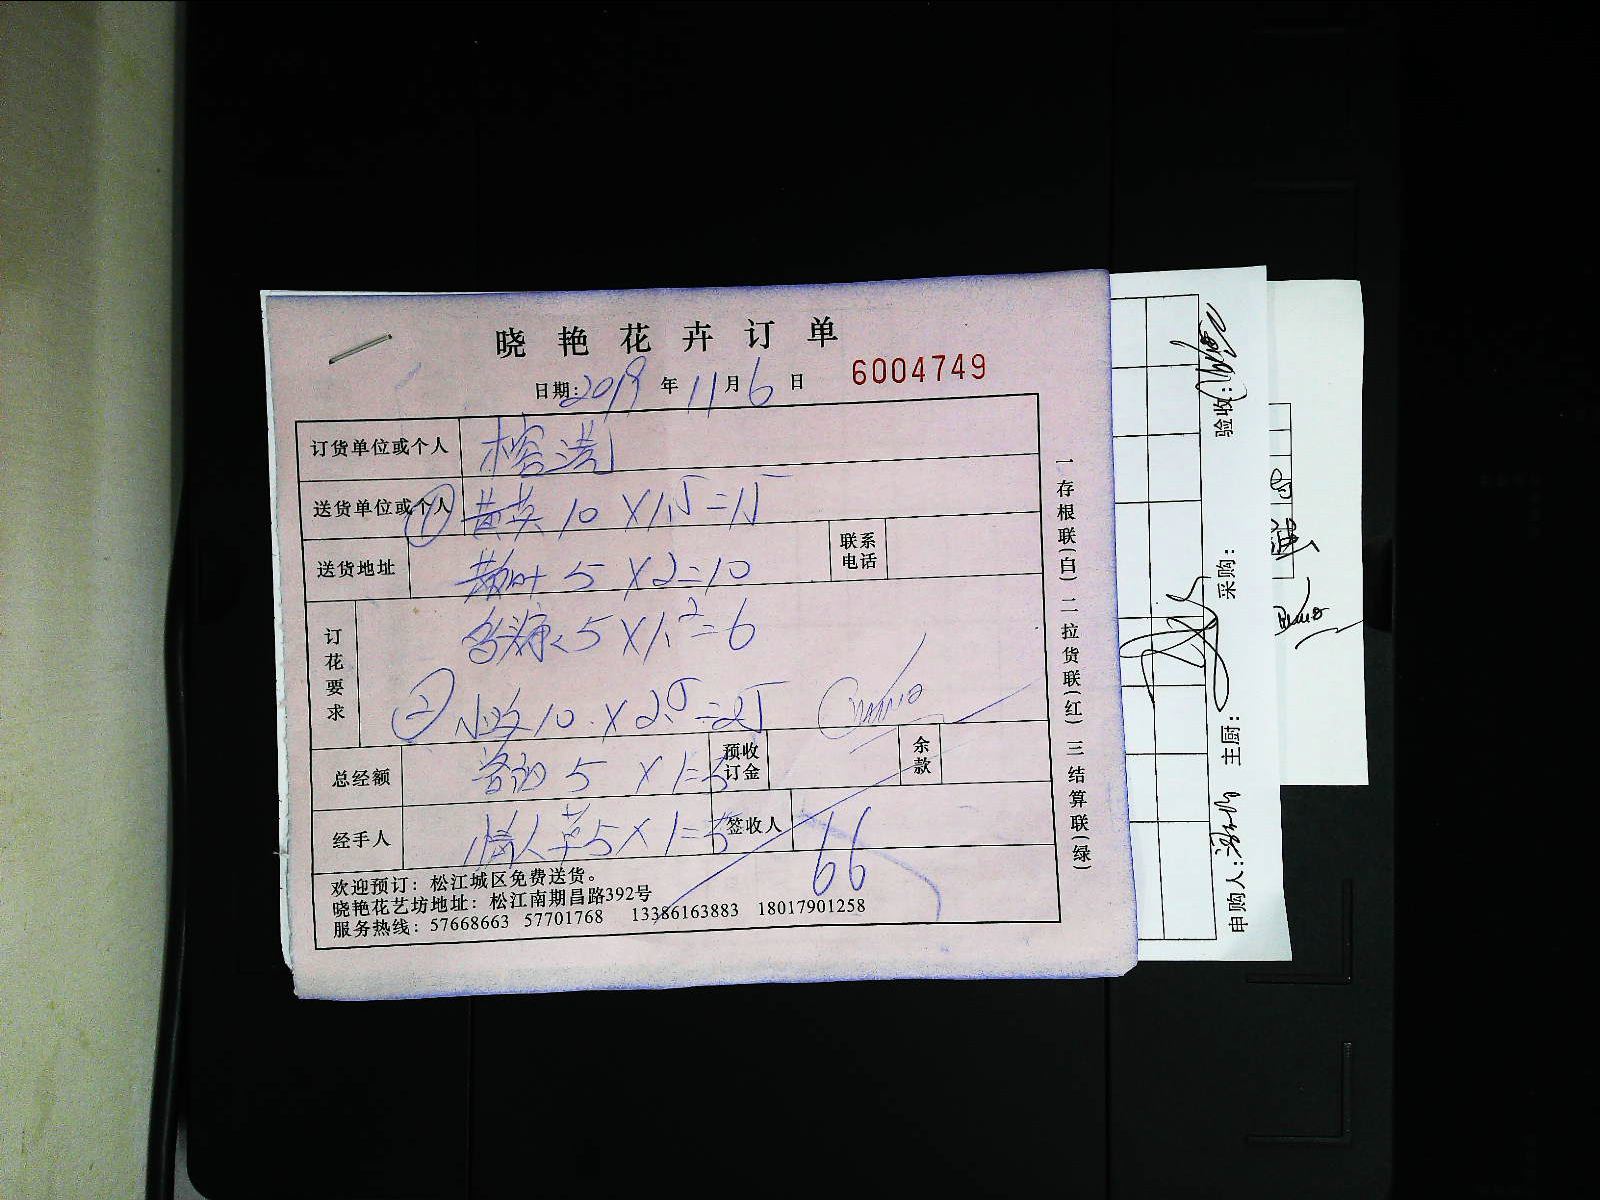 晓艳花卉订单
日期:2019年11月6日 6004749
订货单位或个人 榕港
送货单位或个人 ① 黄英 10 X 1.5=15
送货地址 黄叶 5 X 2=10 联系电话
5 X 1.2=6
订花要求
② 小玫 10 X 2.5=25
总经额 5 X 1=5 预收订金 余款
经手人 情人草 5 X 1=5 签收人 66
欢迎预订：松江城区免费送货。
晓艳花艺坊地址：松江南期昌路392号
服务热线：57668663 57701768 13386163883 18017901258
一存根联(白) 二拉货联(红) 三结算联(绿)
申购人: 主厨: 采购: 验收: